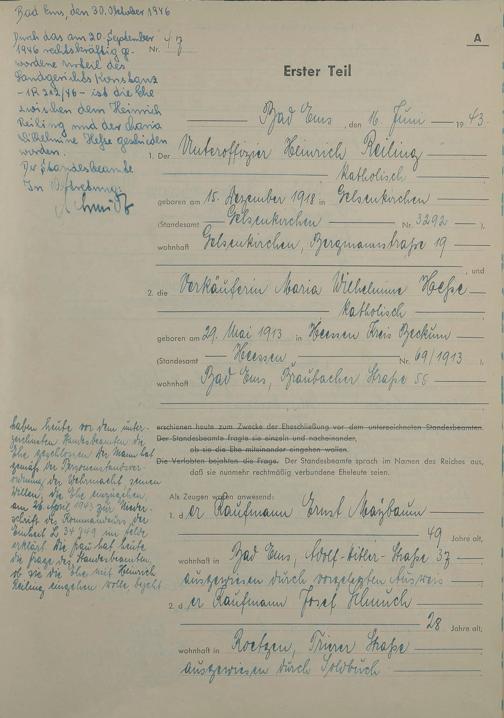 Bad Ems, den 30. Oktober 1946
Durch das am 20. September
1946 rechtskräftig ge-
wordene Urteil des
Landgerichts Konstanz
- 1R 202/46 - ist die Ehe
zwischen dem Heinrich
Reiling und der Maria
Wilhelmine Hesse geschieden
worden.
Der Standesbeamte
In Vertretung:
Schmidt
A
Nr. 47
Erster Teil
Bad Ems, den 16. Juni 1943.
1. Der Unteroffizier Heinrich Reiling
katholisch
geboren am 15. Dezember 1918 in Gelsenkirchen
(Standesamt Gelsenkirchen Nr. 3292 ),
wohnhaft Gelsenkirchen, Bergmannstraße 19
, und
2. die Verkäuferin Maria Wilhelmine Hesse
katholisch
geboren am 29. Mai 1913 in Heessen Kreis Beckum
(Standesamt Heessen Nr. 69/1913 ),
wohnhaft Bad Ems, Braubacher Straße 55
haben heute vor dem unter-
zeichneten Standesbeamten die
Ehe geschlossen. Der Mann hat
gemäß der Personenstandsver-
ordnung der Wehrmacht seinen
Willen, die Ehe einzugehen,
am 26. April 1943 zur Nieder-
schrift des Kommandeurs der
Einheit L 34749 im Felde
erklärt. Die Frau hat heute
die Frage des Standesbeamten,
ob sie die Ehe mit Heinrich
Reiling eingehen wolle, bejaht
erschienen heute zum Zwecke der Eheschließung vor dem unterzeichneten Standesbeamten.
Der Standesbeamte fragte sie einzeln und nacheinander,
ob sie die Ehe miteinander eingehen wollen.
Die Verlobten bejahten die Frage. Der Standesbeamte sprach im Namen des Reiches aus,
daß sie nunmehr rechtmäßig verbundene Eheleute seien.
Als Zeugen waren anwesend:
1. der Kaufmann Ernst
49 Jahre alt,
wohnhaft in Bad Ems, Adolf-Hitler-Straße 37
ausgewiesen durch vorgelegten Ausweis
2. der Kaufmann Josef
28 Jahre alt,
wohnhaft in Roetgen, Trierer Straße
ausgewiesen durch Soldbuch